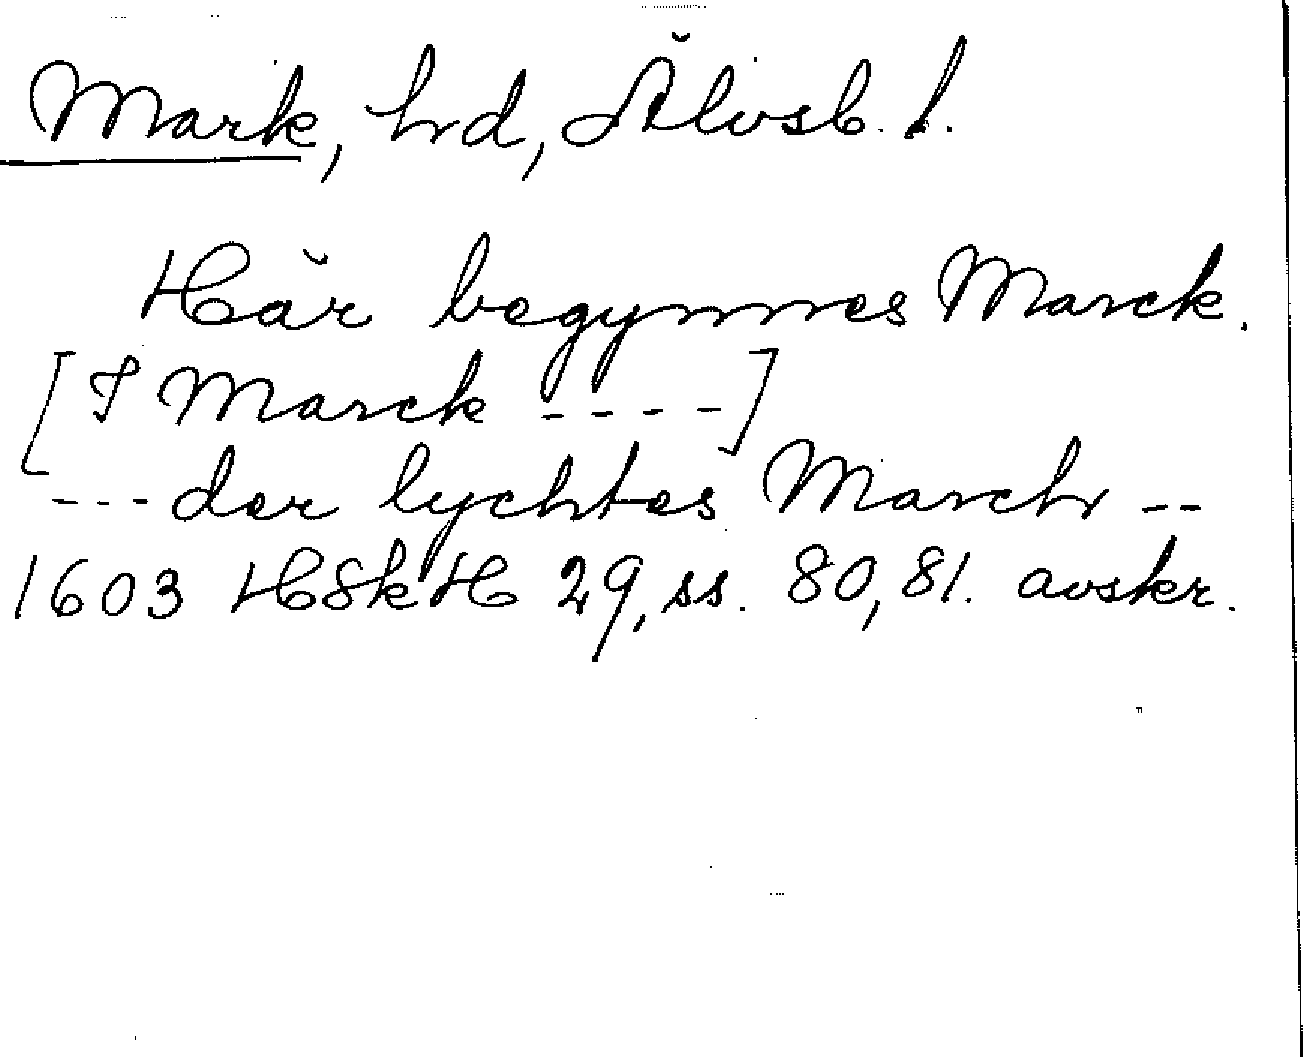 Mark, hd, Älvsb. l.
Här begynnes Marck.
[I Marck ----]
---der lychtes March --
1603 HSkH 29, ss. 80, 81. avskr.